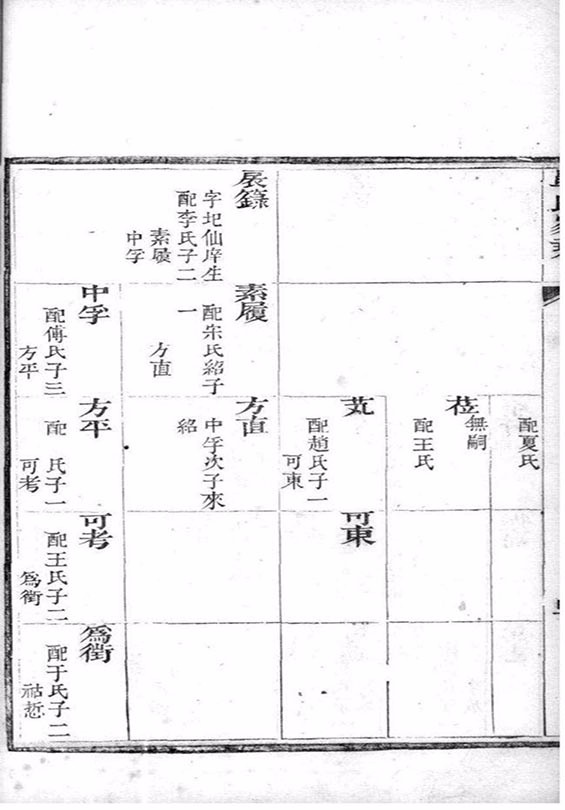 字圯仙庠生
配李氏子二
素履
中孚
素履
配朱氏紹子
一
方直
中孚
配傅氏子三
方平
配夏氏
莅
無嗣
配王氏
芃
配趙氏子一
可東
方直
中孚次子來
紹
方平
配 氏子一
可考
可東
可考
配王氏子二
爲衛
爲衛
配于氏子二
祜悊